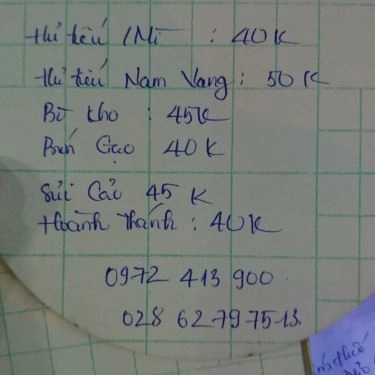 Hủ tiếu / Mì : 40K
Hủ tiếu Nam Vang : 50K
Bò kho : 45K
Bún Gạo 40K
Sủi Cảo 45K
Hoành Thánh : 40K
0972 413 900
028 62797513